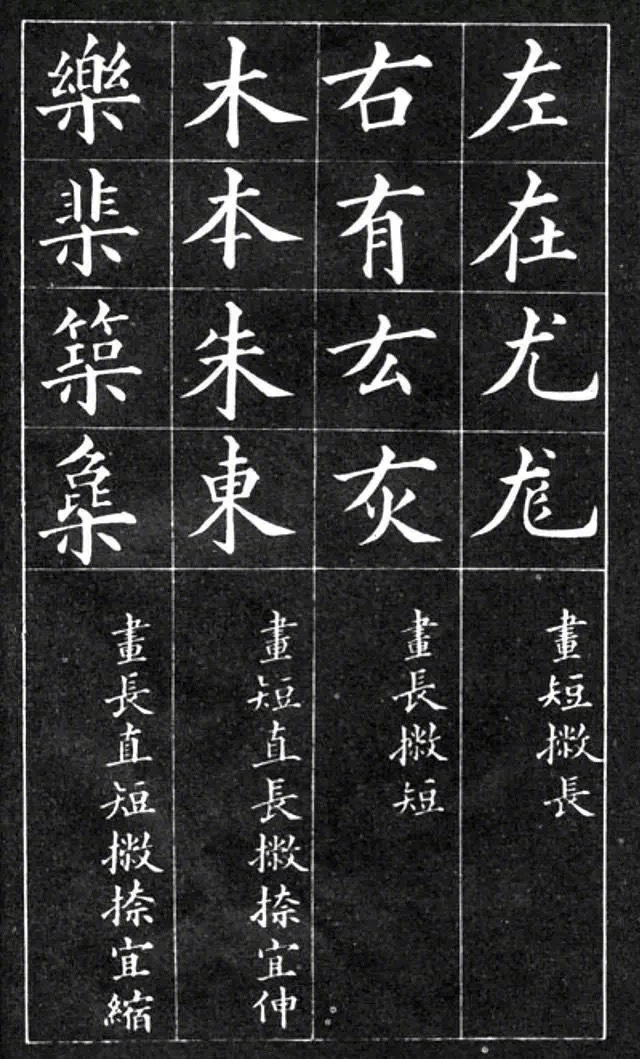 左在尤
畫短撇長
右有厷灰
畫長撇短
木本朱東
畫短直長撇捺宜伸
樂棐築
畫長直短撇捺宜縮